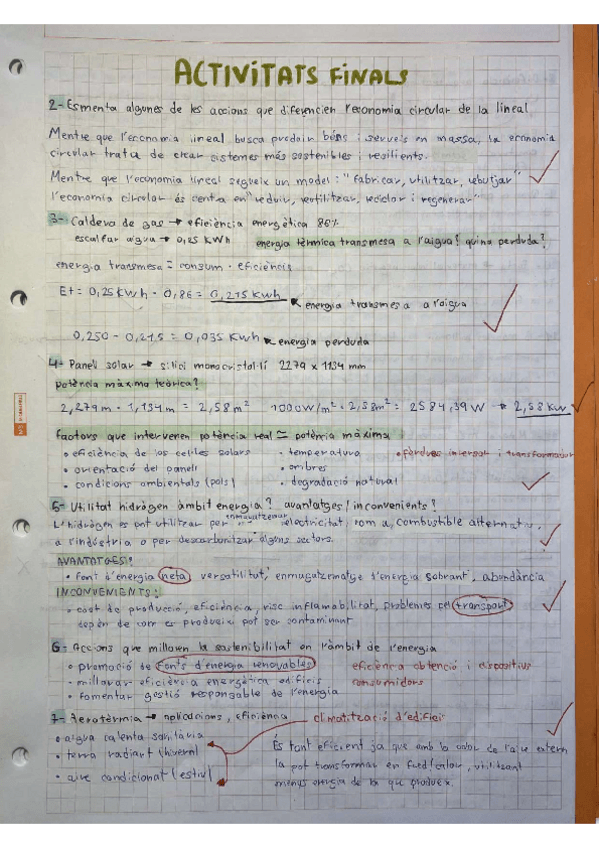 ACTIVITATS FINALS
2- Esmenta algunes de les accions que diferencien l'economia circular de la lineal
Mentre que l'economia lineal busca produir béns i serveis en massa, la economia
circular trata de crear sistemes más sostenibles i resilients.
Mentre que l'economia lineal segueix un model: "fabricar, utilitzar, rebutjar"
l'economia circular és centra en "reduir, reutilitzar, reciclar i regenerar"
3- Caldera de gas → eficiència energètica 86%
escalfar aigua → 0,25 KWh energia tèrmica transmesa a l'aigua? quina perduda?
energia transmesa = consum · eficiència
Et = 0,25 KWh · 0,86 = 0,215 KWh
energia transmesa a l'aigua
0,250 - 0,215 = 0,035 KWh energia perduda
4- Panell solar → silici monocristal·lí 2279 x 1134 mm
potència màxima teòrica?
2,279 m · 1,134 m = 2,58 m² 1000 W/m² · 2,58m² = 2584,39 W → 2,58 KW
factors que intervenen potència real ≃ potència màxima:
• eficiència de les cel·les solars • temperatura • pèrdues inversor i transformador
• orientació del panell • ombres
• condicions ambientals (pols) • degradació natural
5- Utilitat hidrògen àmbit energia? avantatges / inconvenients?
L'hidrògen es pot utilitzar per enmagatzemar electricitat, com a combustible alternatiu,
a l'indústria o per descarbonitzar alguns sectors.
AVANTATGES:
• font d'energia neta, versatilitat, enmagatzematge d'energia sobrant, abundància
INCONVENIENTS:
• cost de producció, eficiència, risc inflamabilitat, problemes pel transport
depèn de com es produeix pot ser contaminant
6- Accions que milloren la sostenibilitat en l'àmbit de l'energia
• promoció de fonts d'energia renovables eficiència obtenció i dispositius
• millorar eficiència energètica edificis consumidors
• fomentar gestió responsable de l'energia
7- Aerotèrmia → aplicacions, eficiència climatització d'edifici
• aigua calenta sanitària
• terra radiant (hivern)
• aire condicionat (estiu)
És tant eficient ja que amb la calor de l'aire extern
la pot transformar en fred/calor, utilitzant
menys energia de la que produeix.